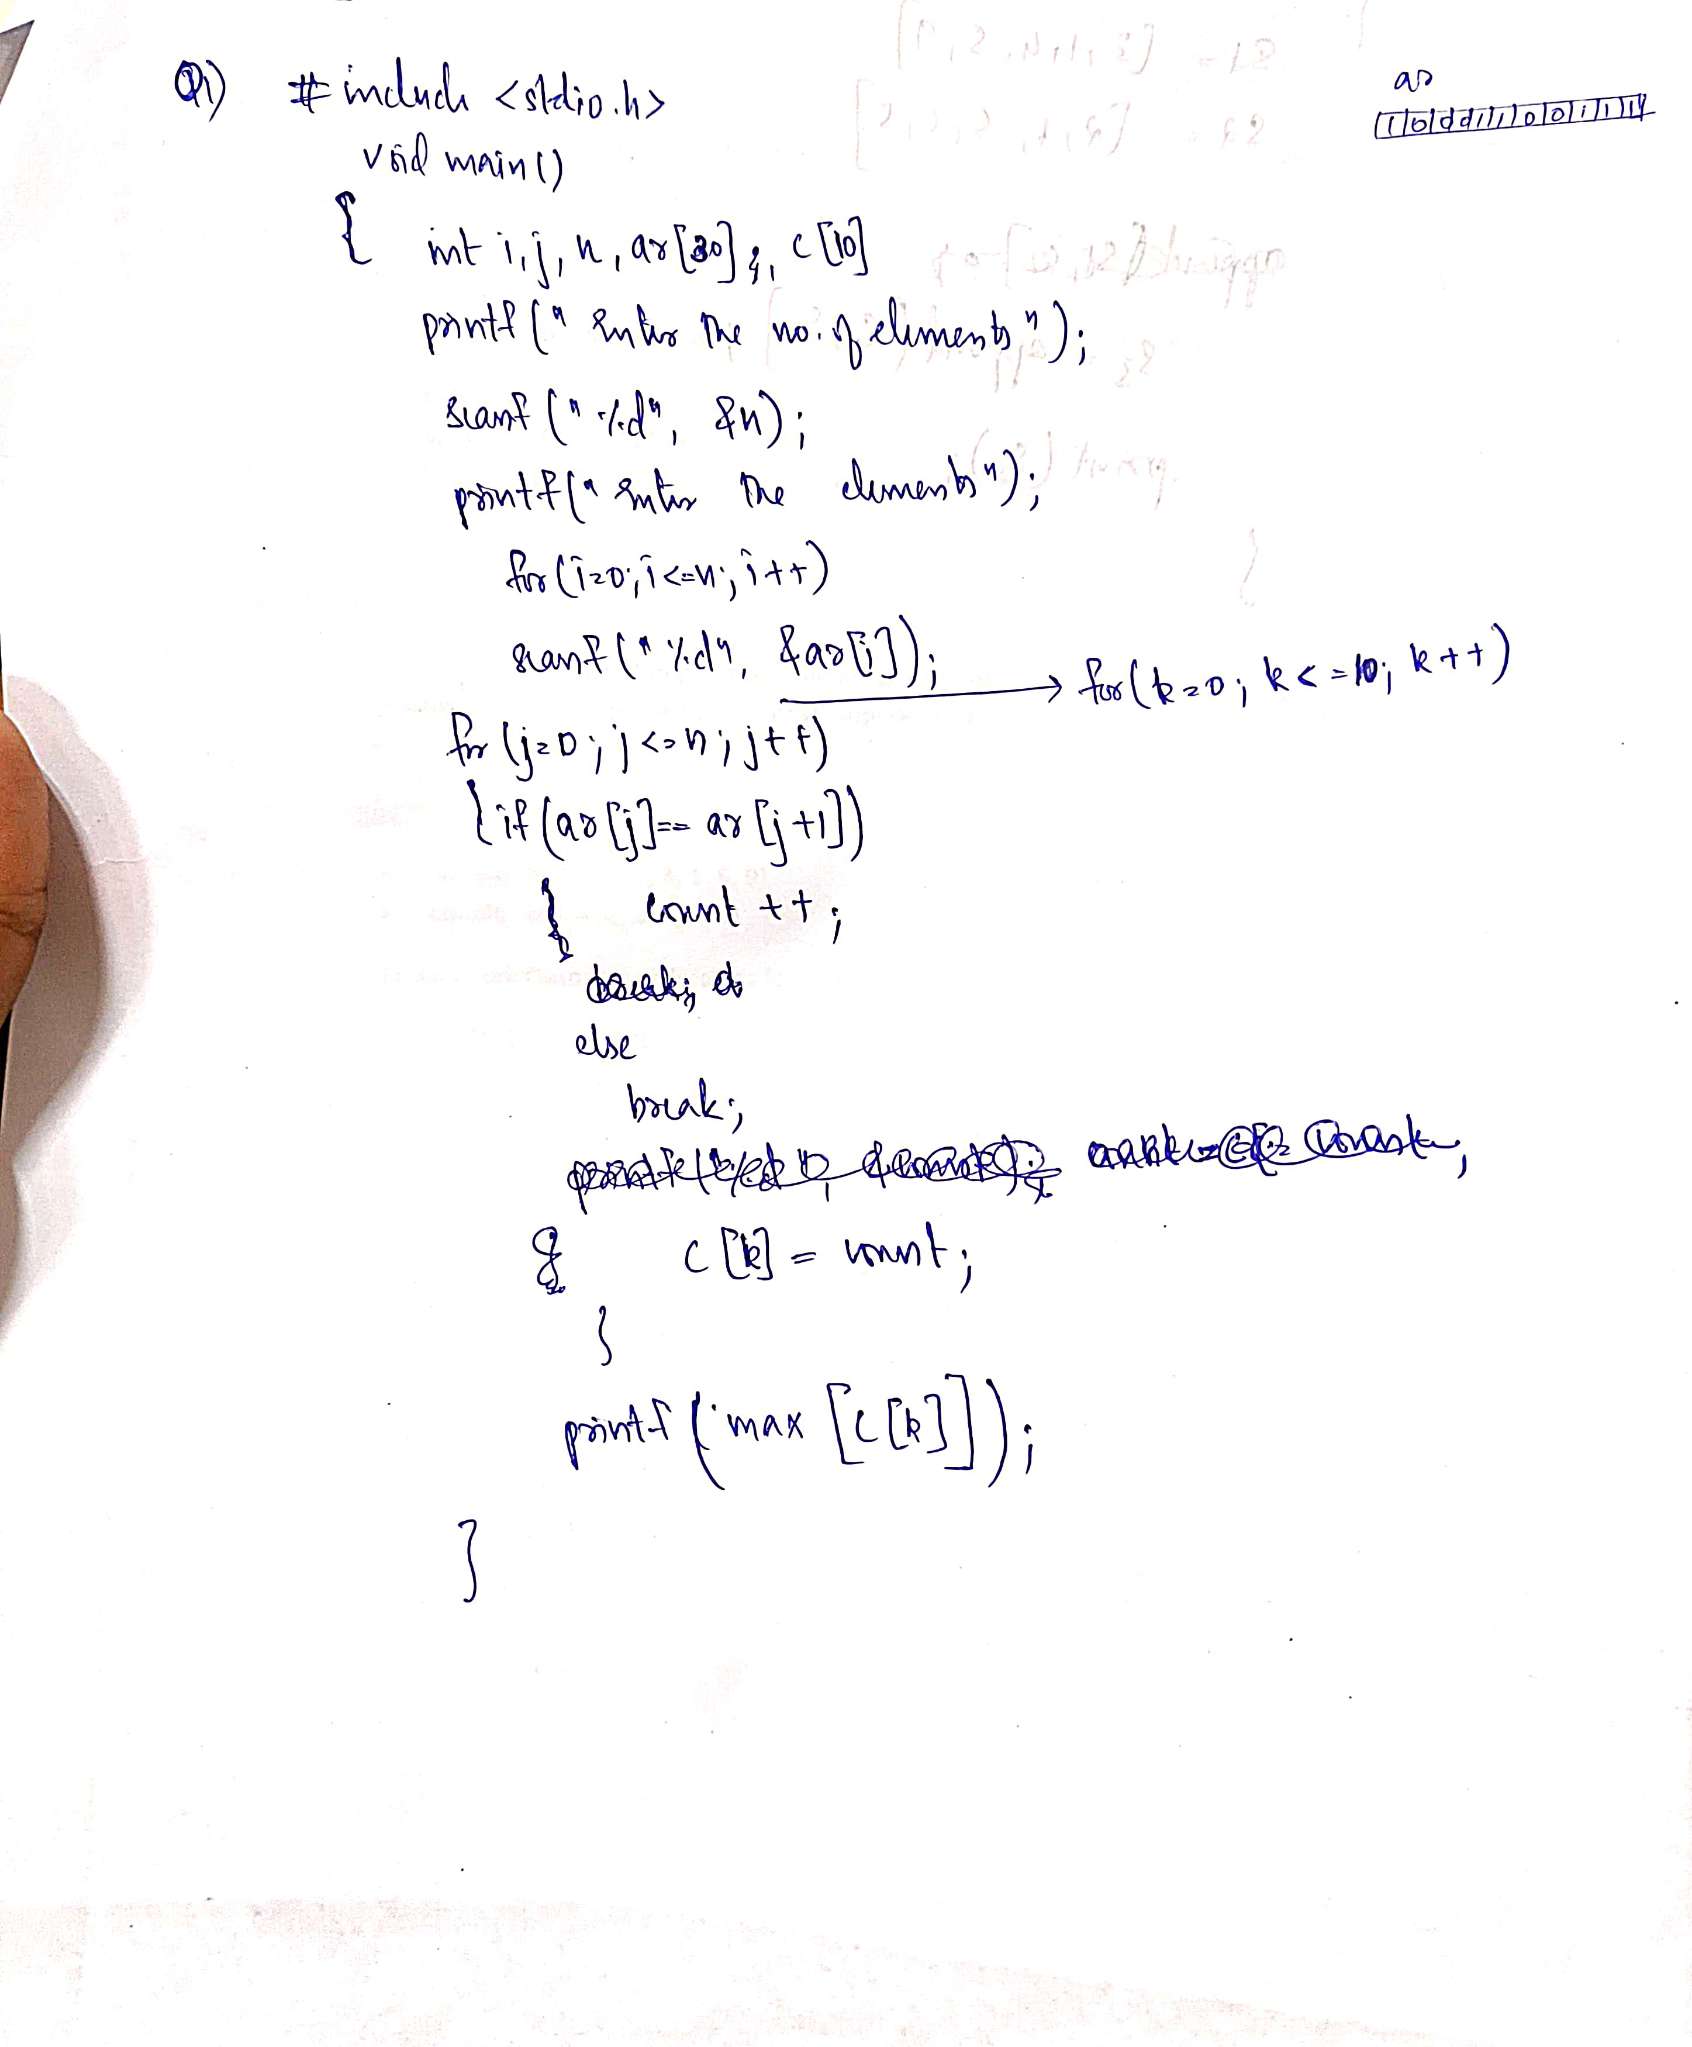 Q1) #include <stdio.h>
ar
void main()
{ int i,j,n,ar[30], c[10]
printf("Enter The no. of elements");
scanf("%d", &n);
printf("Enter The elements");
for(i=0;i<=n;i++)
scanf("%d", &ar[i]);
→ for(k=0; k<=10; k++)
for(j=0;j<=n;j++)
{if(ar[j]==ar[j+1])
{ count++;
else
break;
c[k] = count;
}
printf("max[c[k]]);
}